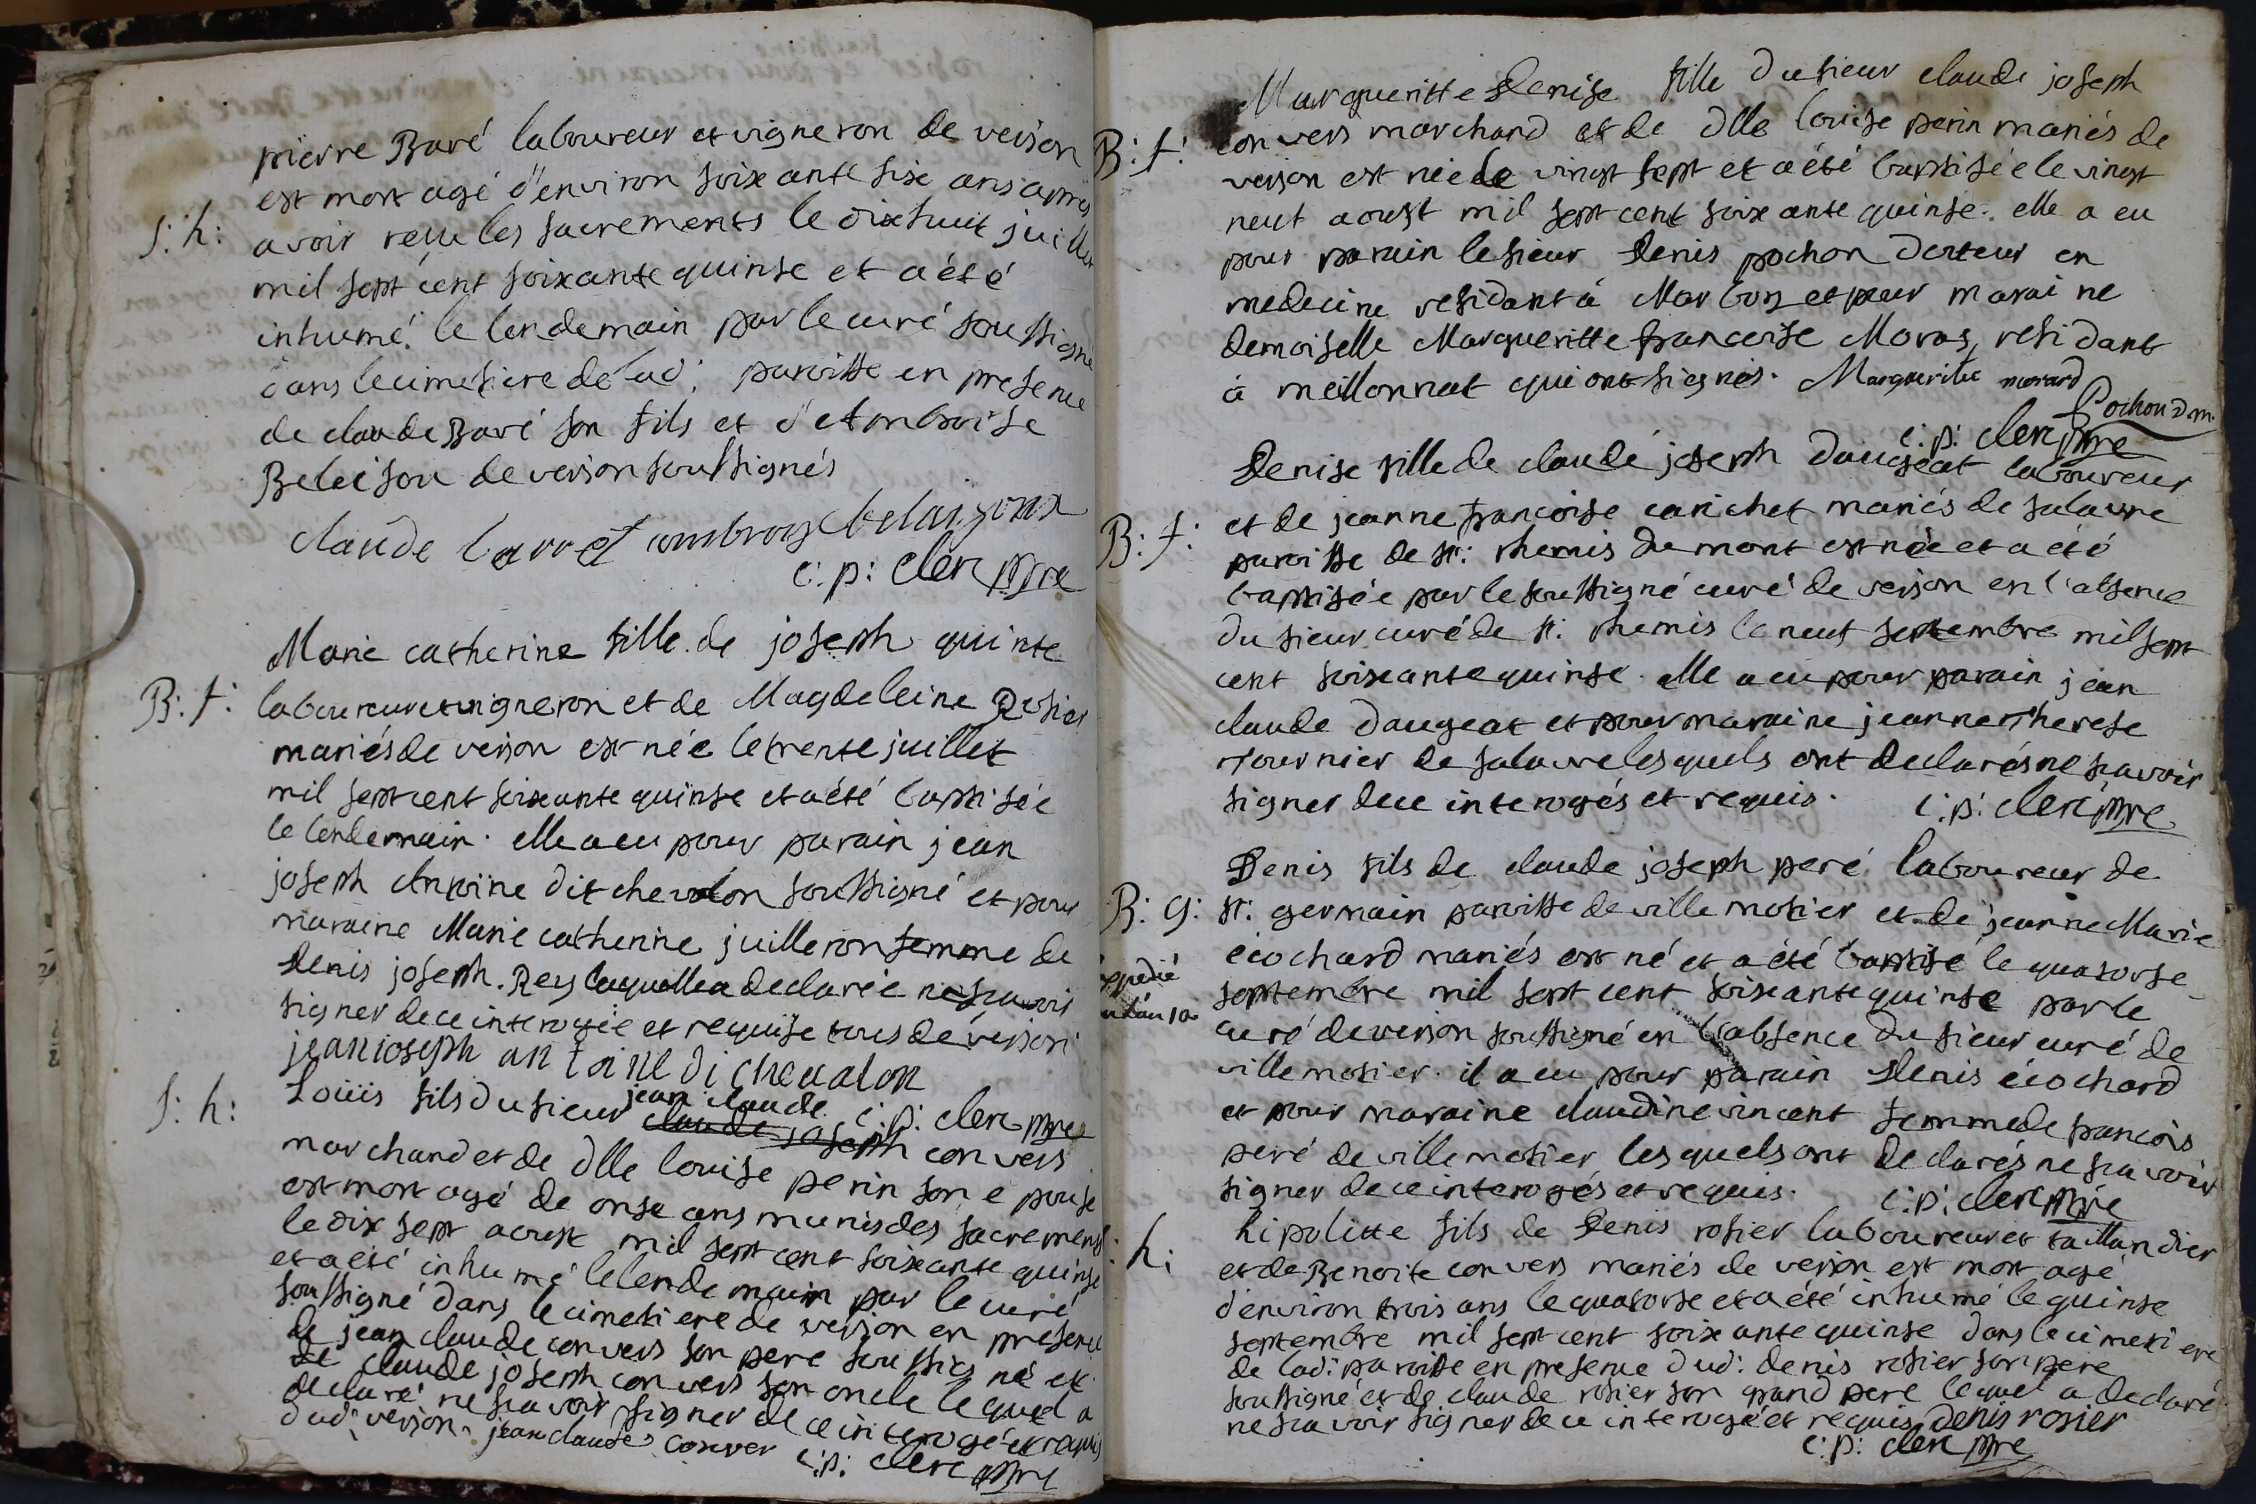 pierre Baré laboureur et vigneron de verjon
est mort agé d'environ soixante sixe ans après
S: h: avoir reçu les sacrements le dixhuit juillet
mil sept cent soixante quinse et a été
inhumé le lendemain par le curé soussigné
dans le cimetiere de lad: paroisse en presence
de claude Baré son fils et d'Ambroise
Beleison de verjon soussignés
claude barret ambroys belaisoux
c: p: clerc ptre
Marie catherine fille de joseph quinte
B: f: laboureur et vigneron et de Magdeleine Rosier
mariés de verjon est née le trente juillet
mil sept cent soixante quinse et a été baptisée
le lendemain. elle a eu pour parain jean
joseph Antoine dit chevalon soussigné et pour
maraine Marie catherine juilleron femme de
denis joseph Rey laquelle a declarée ne sçavoir
signer de ce interogée et requise tous de verjon
jean joseph antoine di chevalon
c: p: clerc ptre
S: h: Loüis fils du sieur claude joseph jean claude convers
marchand et de dlle louise perin son epouse
est mort agé de onse ans munis des sacrements
le dix sept aoust mil sept cent soixante quinse
et a été inhumé le lendemain par le curé
soussigné dans le cimetiere de verjon en presence
de jean claude convers son pere soussigné et
de claude joseph convers son oncle lequel a
declaré ne sçavoir signer de ce interogé et requis
dud: verjon. jean claude conver c: p: clerc ptre
Margueritte denise fille du sieur claude joseph
B: f: convers marchand et de dlle louise perin mariés de
verjon est née le vingt sept et a été baptisée le vingt
neuf aoust mil sept cent soixante quinse. elle a eu
pour parain le sieur denis pochon docteur en
medecine residant à Marboz et pour maraine
demoiselle Margueritte francoise Moras, residant
à meillonnat qui ont signés. Marguerite morard
Pochon d m.
c: p: clerc ptre
Denise fille de claude joseph daugeat laboureur
B: f: et de jeanne francoise carichet mariés de salavre
paroisse de st: rhemis du mont est née et a été
baptisée par le soussigné curé de verjon en l'absence
du sieur curé de st: rhemis le neuf septembre mil sept
cent soixante quinse. elle a eu pour parain jean
claude daugeat et pour maraine jeanne therese
tournier de salavre lesquels ont declarés ne sçavoir
signer de ce interogés et requis. c: p: clerc ptre
Denis fils de claude joseph peré laboureur de
B: g: st: germain paroisse de ville motier et de jeanne Marie
écochard mariés est né et a été baptisé le quatorse
septembre mil sept cent soixante quinse par le
curé de verjon soussigné en l'absence du sieur curé de
ville motier. il a eu pour parain denis écochard
et pour maraine claudine vincent femme de francois
peré de ville motier lesquels ont declarés ne sçavoir
signer de ce interogés et requis. c: p: clerc ptre
: h: hipolitte fils de denis rosier laboureur et taillandier
et de Benoite convers mariés de verjon est mort agé
d'environ trois ans le quatorse et a été inhumé le quinse
septembre mil sept cent soixante quinse dans le cimetiere
de lad: paroisse en presence dud: denis rosier son pere
soussigné et de claude rosier son grand pere lequel a declaré
ne sçavoir signer de ce interogé et requis denis rosier
c: p: clerc ptre